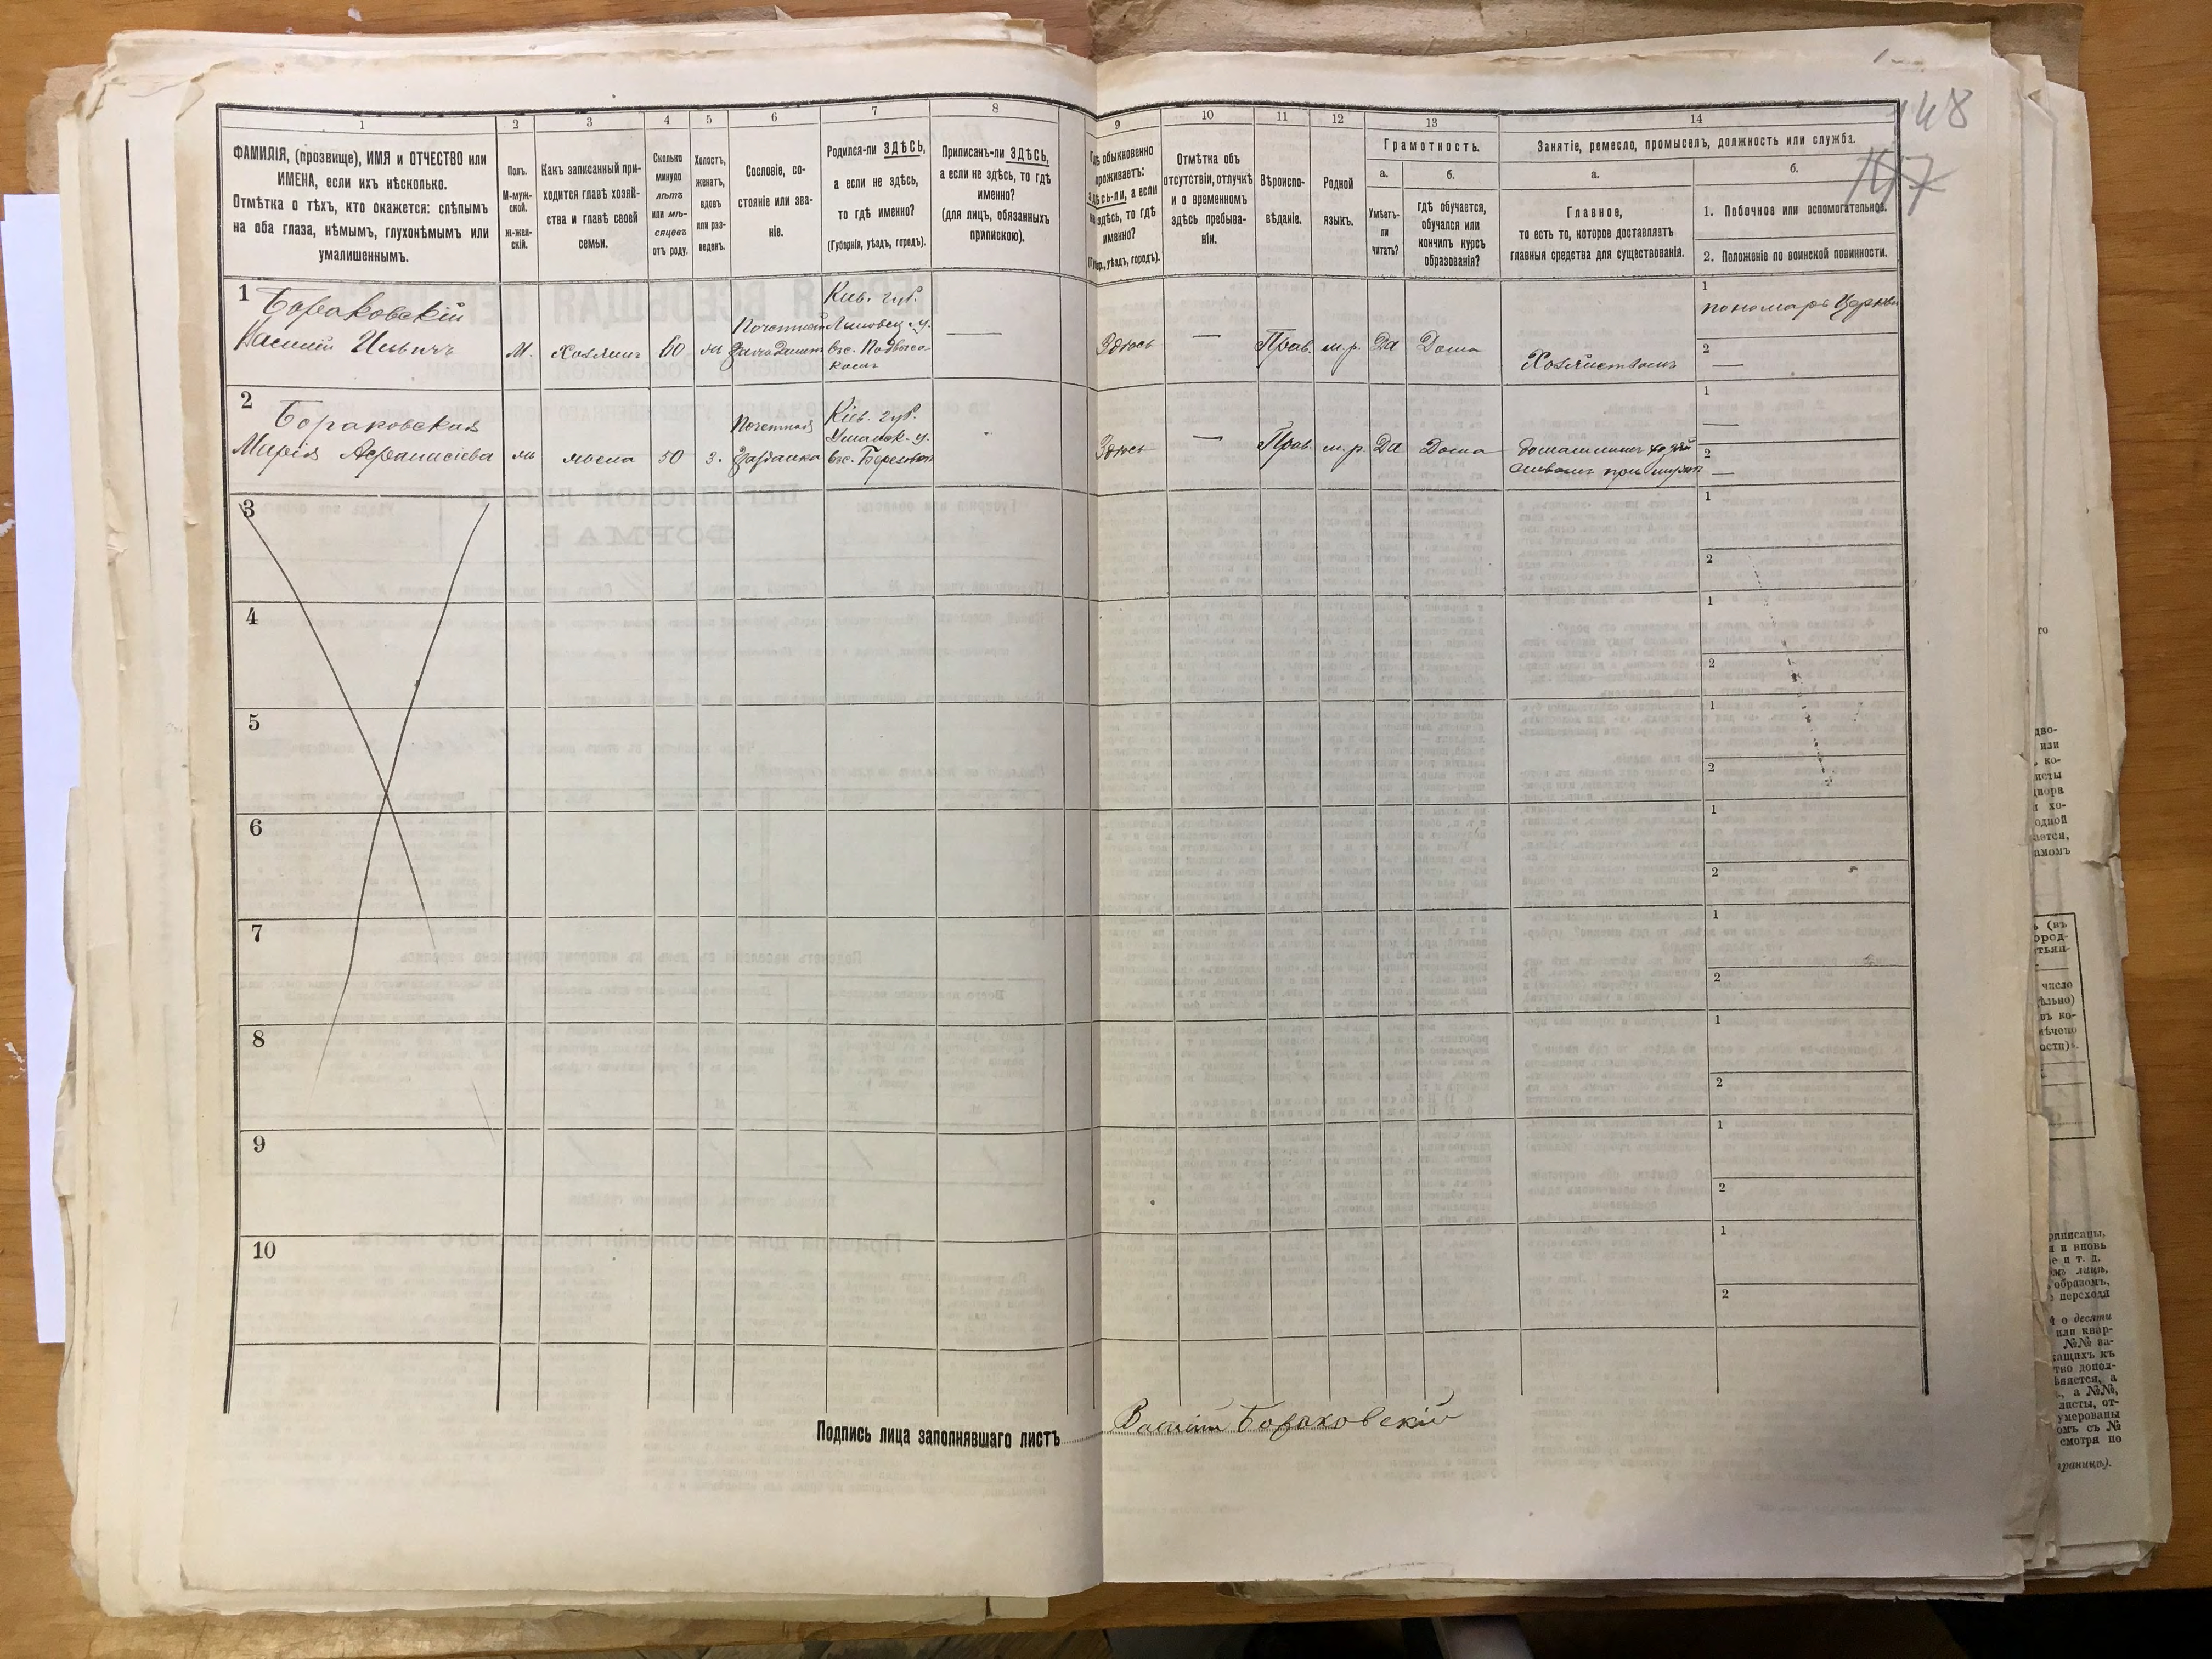 148
147
1
2
3
4
5
6
7
8
9
10
11
12
13
14
ФАМИЛІЯ, (прозвище), ИМЯ и ОТЧЕСТВО или
ИМЕНА, если ихъ нѣсколько.
Отмѣтка о тѣхъ, кто окажется: слѣпымъ
на оба глаза, нѣмымъ, глухонѣмымъ или
умалишеннымъ.
Полъ.
М-муж-
ской.
Ж-жен-
скій.
Какъ записанный при-
ходится главѣ хозяй-
ства и главѣ своей
семьи.
Сколько
минуло
лѣтъ
или мѣ-
сяцевъ
отъ роду.
Холостъ,
женатъ,
вдовъ
или раз-
веденъ.
Сословіе, со-
стояніе или зва-
ніе.
Родился-ли ЗДѢСЬ,
а если не здѣсь,
то гдѣ именно?
(Губернія, уѣздъ, городъ).
Приписанъ-ли ЗДѢСЬ,
а если не здѣсь, то гдѣ
именно?
(для лицъ, обязанныхъ
припискою).
обыкновенно
проживаетъ:
здѣсь-ли, а если
не здѣсь, то гдѣ
именно?
уѣздъ, городъ).
Отмѣтка объ
отсутствіи, отлучкѣ
и о временномъ
здѣсь пребыва-
ніи.
Вѣроиспо-
вѣданіе.
Родной
языкъ.
Грамотность.
а.
Умѣетъ-
ли
читать?
б.
гдѣ обучается,
обучался или
кончилъ курсъ
образованія?
Занятіе, ремесло, промыселъ, должность или служба.
а.
Главное,
то есть то, которое доставляетъ
главныя средства для существованія.
б.
1. Побочное или вспомогательное.
2. Положеніе по воинской повинности.
1
Бораковскій
Василій Ильичъ
М.
Хозяинъ
60
Кіев. губ.
Здѣсь
—
Прав.
м.р.
Да
Дома
Хозяйствомъ
1
пономарь Церкви
2
—
2
Бораковская
Марія Афанасіева
жена
50
З.
Почетная
Кіев. губ.
Уманск. у.
Здѣсь
—
Прав.
м.р.
Да
Дома
1
—
2
—
3
1
2
4
1
2
5
1
2
6
1
2
7
1
2
8
1
2
9
1
2
10
1
2
Подпись лица заполнявшаго листъ
Василій Бораковскій